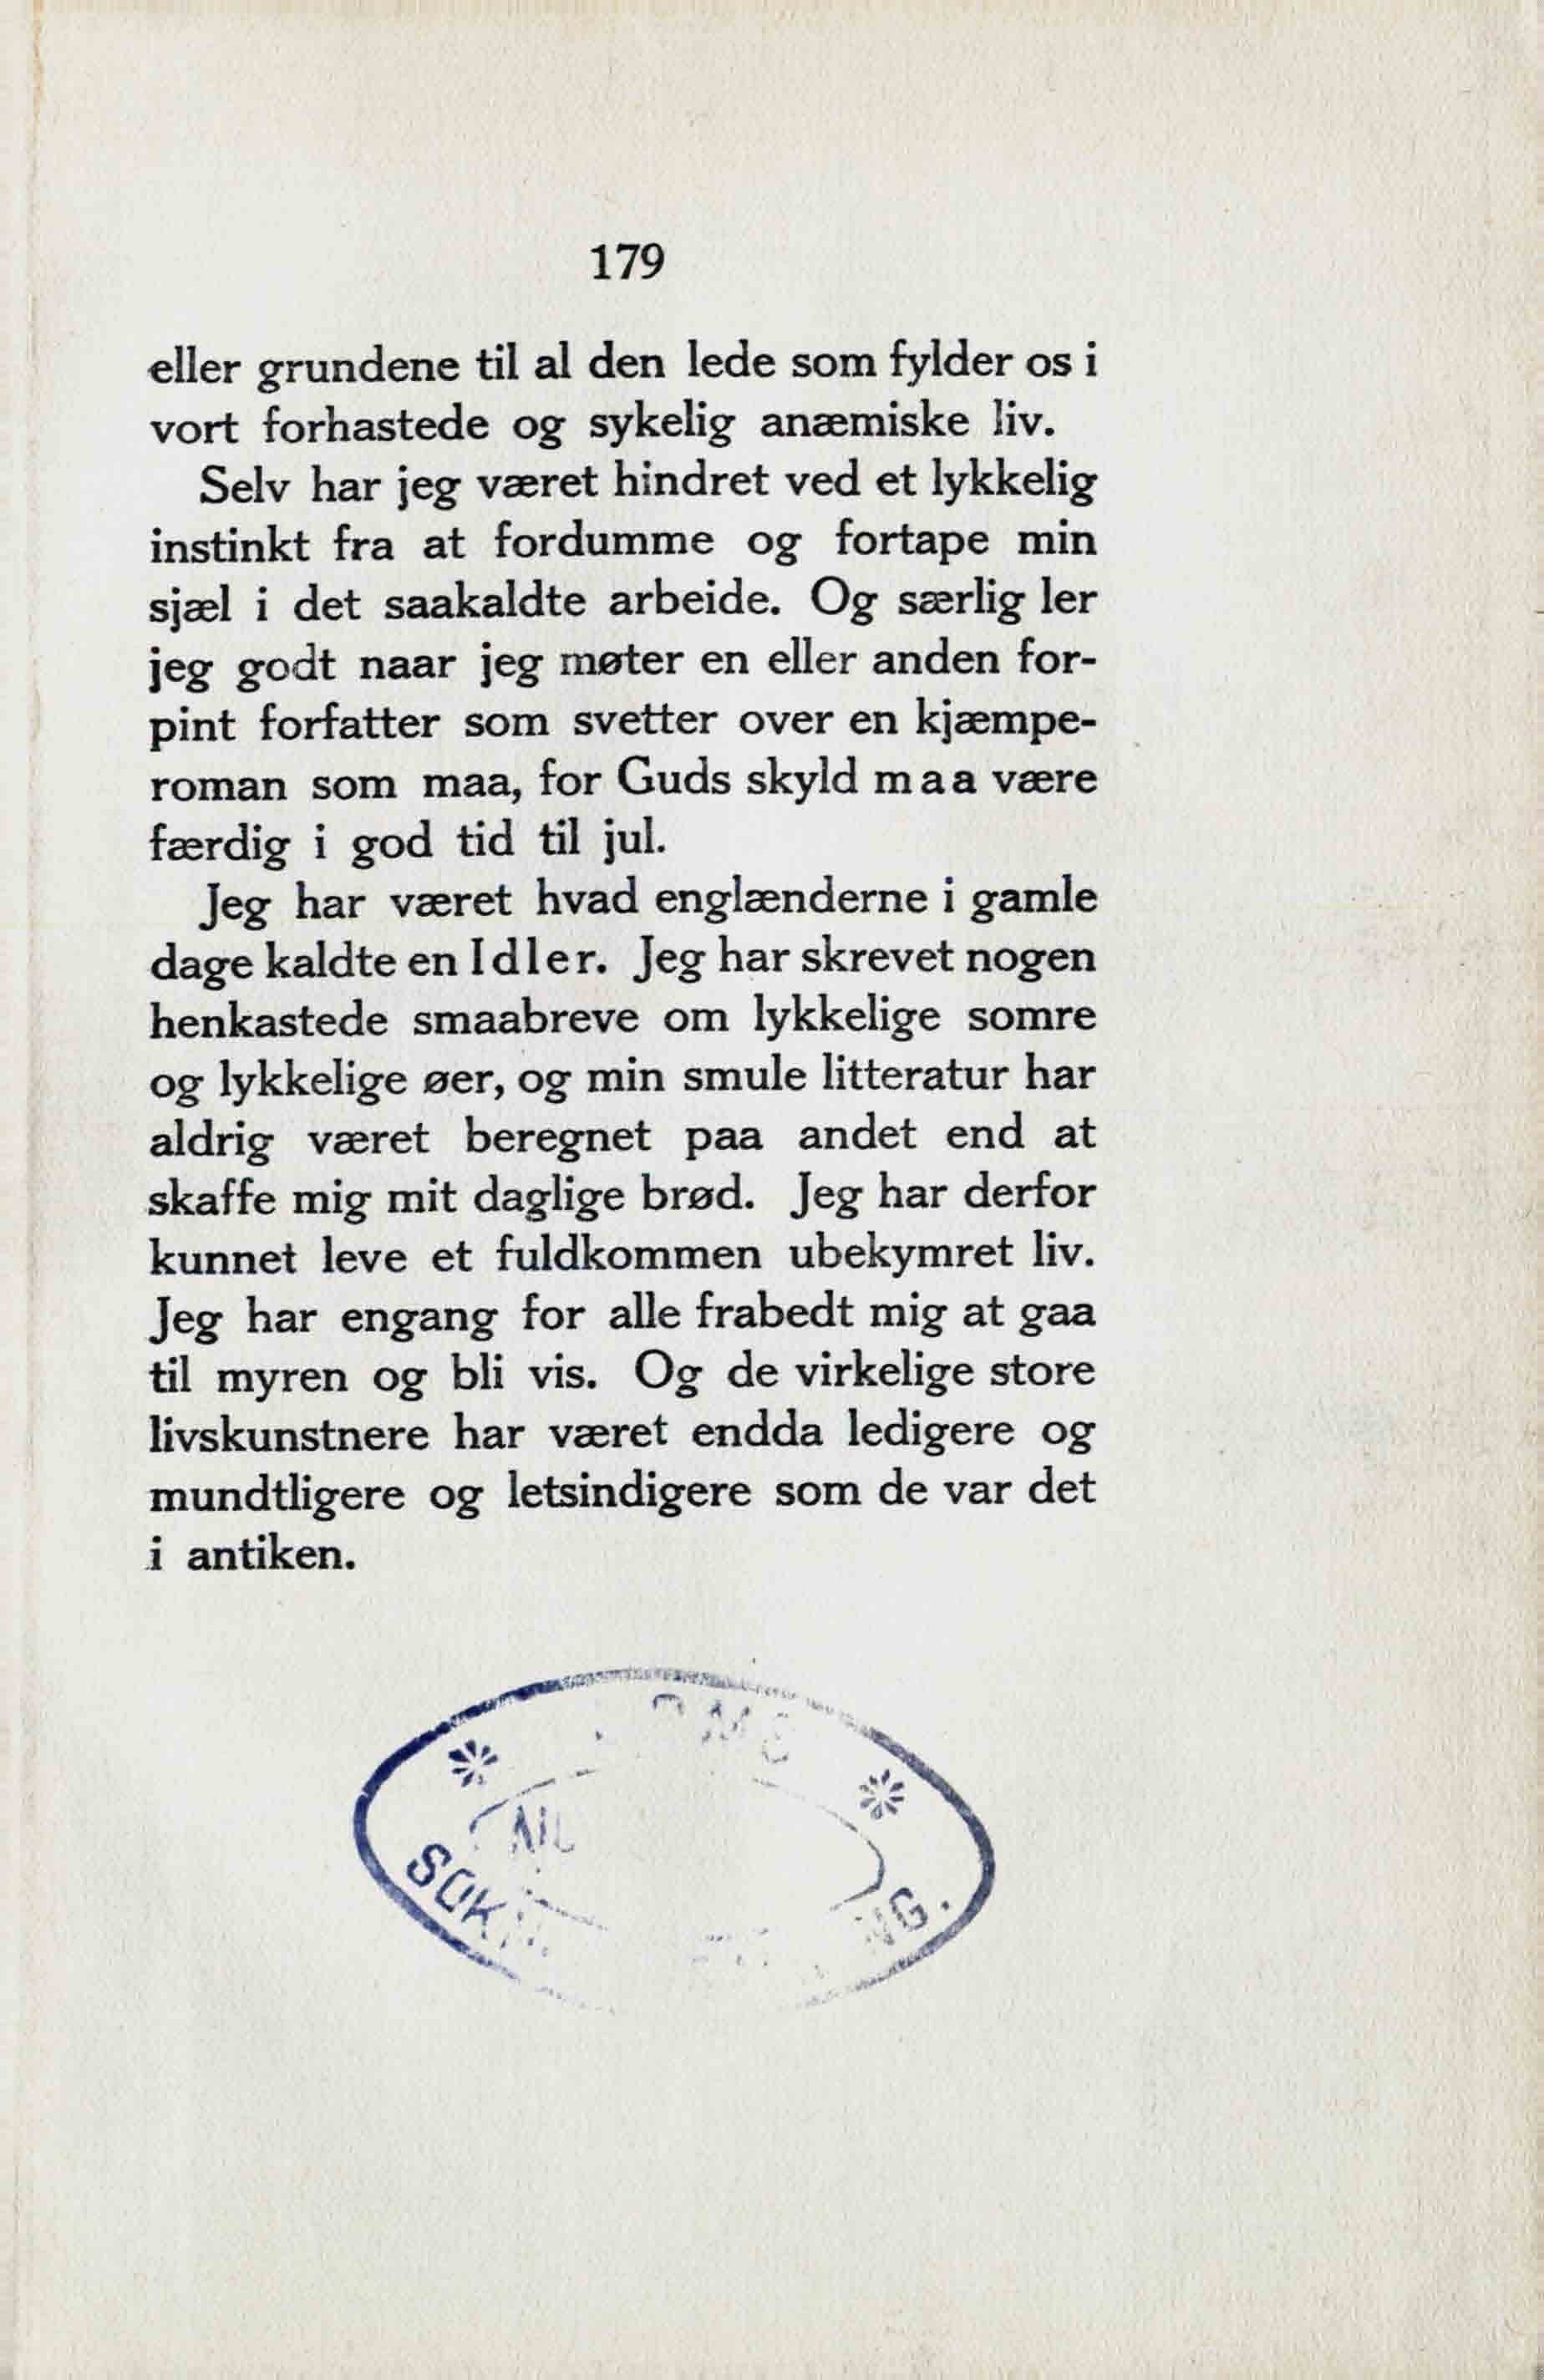 179
eller grundene til al den lede som fylder os i
vort forhastede og sykelig anæmiske liv.
Selv har jeg været hindret ved et lykkelig
instinkt fra at fordumme og fortape min
sjæl i det saakaldte arbeide. Og særlig ler
jeg godt naar jeg møter en eller anden for-
pint forfatter som svetter over en kjæmpe-
roman som maa, for Guds skyld maa være
færdig i god tid til jul.
Jeg har været hvad englænderne i gamle
dage kaldte en Idler. Jeg har skrevet nogen
henkastede smaabreve om lykkelige somre
og lykkelige øer, og min smule litteratur har
aldrig været beregnet paa andet end at
skaffe mig mit daglige brød. Jeg har derfor
kunnet leve et fuldkommen ubekymret liv.
Jeg har engang for alle frabedt mig at gaa
til myren og bli vis. Og de virkelige store
livskunstnere har været endda ledigere og
mundtligere og letsindigere som de var det
i antiken.